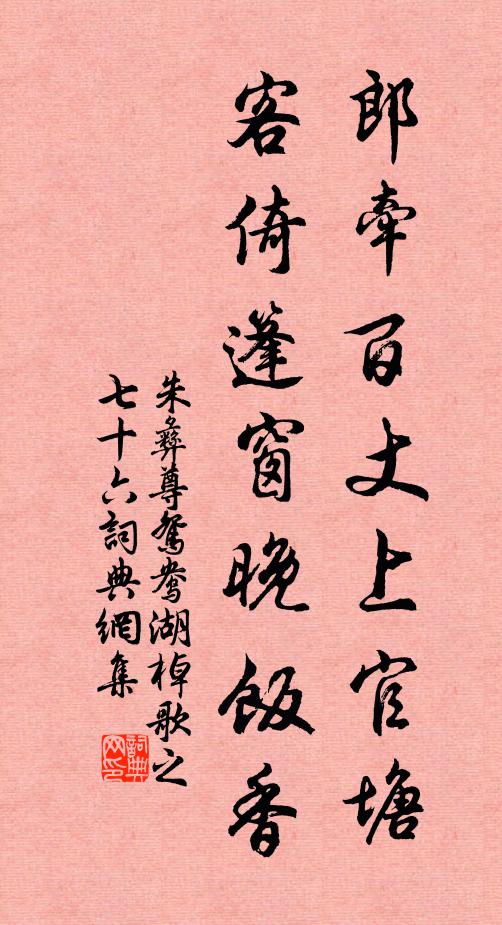 郎牽百丈上官塘
客倚篷窗晚飯香
朱彝尊鴛鴦湖棹歌之
七十六詞典網集
詞典网印